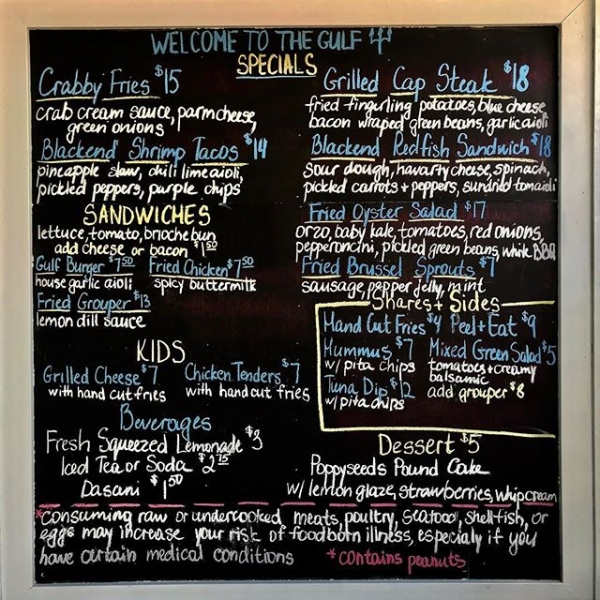 WELCOME TO THE GULF
SPECIALS
Crabby Fries $15
crab cream sauce, parm cheese,
green onions
Blackend Shrimp Tacos $14
pineapple slaw, chili lime aioli,
pickled peppers, purple chips
Grilled Cap Steak $18
fried fingurling potatoes, blue cheese,
bacon wraped green beans, garlic aioli
Blackend Redfish Sandwich $18
sour dough, havarty cheese, spinach,
pickled carrots + peppers, sundried tom aioli
Fried Oyster Salad $17
orzo, baby kale, tomatoes, red onions,
pepperoncini, pickled green beans, white BBQ
Fried Brussel Sprouts $7
sausage, pepper jelly, mint
SANDWICHES
lettuce, tomato, brioche bun
add cheese or bacon $1.50
Gulf Burger $7.50 Fried Chicken $7.50
house garlic aioli spicy buttermilk
Fried Grouper $13
lemon dill sauce
Shares + Sides
Hand Cut Fries $4 Peel + Eat $9
Hummus $7 Mixed Green Salad $5
w/ pita chips tomatoes + creamy
balsamic
Tuna Dip $12 add grouper $8
w/ pita chips
KIDS
Grilled Cheese $7 Chicken Tenders $7
with hand cut fries with hand cut fries
Beverages
Fresh Squeezed Lemonade $3
Iced Tea or Soda $2.75
Dasani $1.50
Dessert $5
Poppyseeds Pound Cake
w/ lemon glaze, strawberries, whip cream
*Consuming raw or undercooked meats, poultry, seafood, shellfish, or
eggs may increase your risk of foodborn illness, especialy if you
have certain medical conditions *contains peanuts